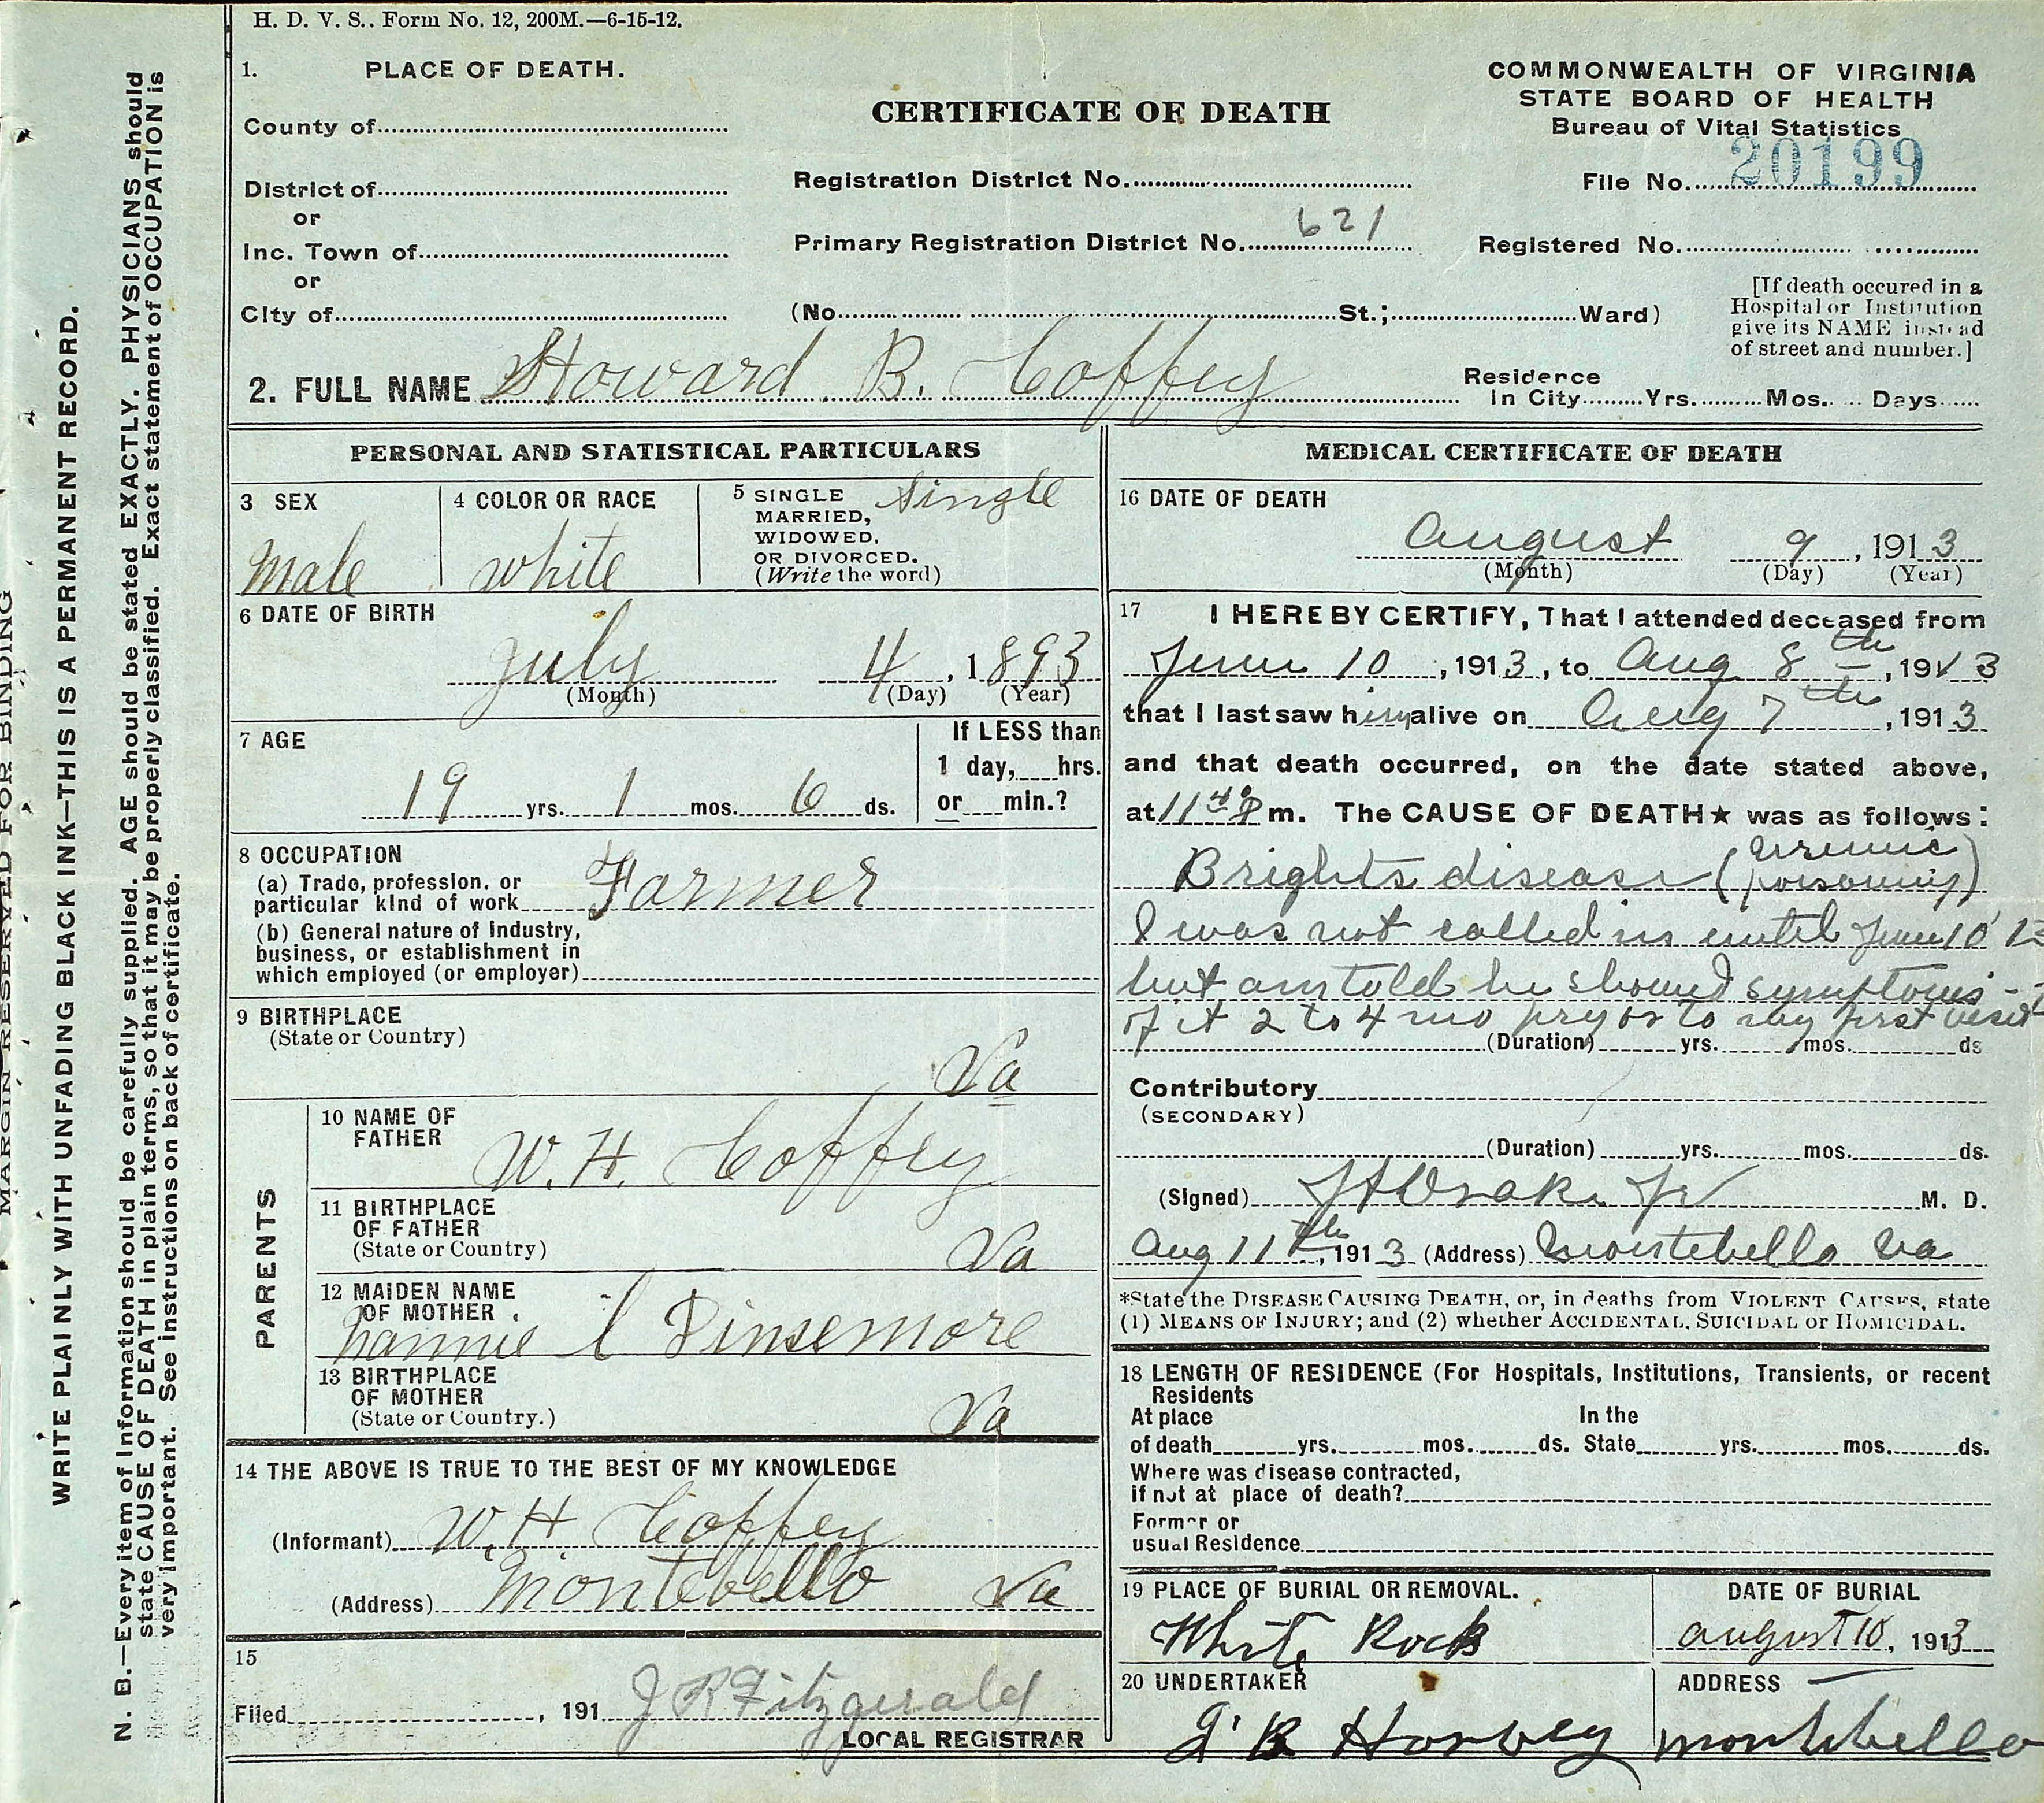 H. D. V. S.. Form No. 12, 200M.—6-15-12.
1. PLACE OF DEATH.
County of
District of
or
Inc. Town of
or
City of
CERTIFICATE OF DEATH
Registration District No.
Primary Registration District No. 621
(No. St.; Ward)
COMMONWEALTH OF VIRGINIA
STATE BOARD OF HEALTH
Bureau of Vital Statistics
File No. 20199
Registered No.
[If death occured in a
Hospital or Institution
give its NAME instead
of street and number.]
2. FULL NAME Howard B. Coffey
Residence
In City Yrs. Mos. Days
PERSONAL AND STATISTICAL PARTICULARS
3 SEX
Male
4 COLOR OR RACE
White
5 SINGLE
MARRIED,
WIDOWED,
OR DIVORCED.
(Write the word)
Single
6 DATE OF BIRTH
July 4, 1893
(Month) (Day) (Year)
7 AGE
19 yrs. 1 mos. 6 ds.
If LESS than
1 day, hrs.
or min.?
8 OCCUPATION
(a) Trade, profession, or
particular kind of work Farmer
(b) General nature of Industry,
business, or establishment in
which employed (or employer)
9 BIRTHPLACE
(State or Country)
Va
PARENTS
10 NAME OF
FATHER
W. H. Coffey
11 BIRTHPLACE
OF FATHER
(State or Country)
Va
12 MAIDEN NAME
OF MOTHER
Nannie C Dinsemore
13 BIRTHPLACE
OF MOTHER
(State or Country.)
Va
14 THE ABOVE IS TRUE TO THE BEST OF MY KNOWLEDGE
(Informant) W. H Coffey
(Address) Montebello Va
15
Filed , 191 J R Fitzgerald
LOCAL REGISTRAR
MEDICAL CERTIFICATE OF DEATH
16 DATE OF DEATH
August 9, 1913
(Month) (Day) (Year)
17 I HEREBY CERTIFY, That I attended deceased from
June 10, 1913, to Aug 8th, 1913
that I last saw him alive on Aug 7th, 1913
and that death occurred, on the date stated above,
at 11 40 P m. The CAUSE OF DEATH★ was as follows:
Brights disease (uremic
poisoning)
I was not called in until June 10 13
but am told he showed symptoms
of it 2 to 4 mo pryor to my first visit
(Duration) yrs. mos. ds
Contributory
(SECONDARY)
(Duration) yrs. mos. ds.
(Signed) Drake Jr M. D.
Aug 11th, 1913 (Address) Montebello Va
*State the DISEASE CAUSING DEATH, or, in deaths from VIOLENT CAUSES, state
(1) MEANS OF INJURY; and (2) whether ACCIDENTAL, SUICIDAL or HOMICIDAL.
18 LENGTH OF RESIDENCE (For Hospitals, Institutions, Transients, or recent
Residents
At place In the
of death yrs. mos. ds. State yrs. mos. ds.
Where was disease contracted,
if not at place of death?
Former or
usual Residence
19 PLACE OF BURIAL OR REMOVAL.
White Rock
DATE OF BURIAL
August 10, 1913
20 UNDERTAKER
ADDRESS
Montebello
MARGIN RESERVED FOR BINDING
WRITE PLAINLY WITH UNFADING BLACK INK—THIS IS A PERMANENT RECORD.
N. B.—Every item of Information should be carefully supplied. AGE should be stated EXACTLY. PHYSICIANS should
state CAUSE OF DEATH in plain terms, so that it may be properly classified. Exact statement of OCCUPATION is
very important. See instructions on back of certificate.